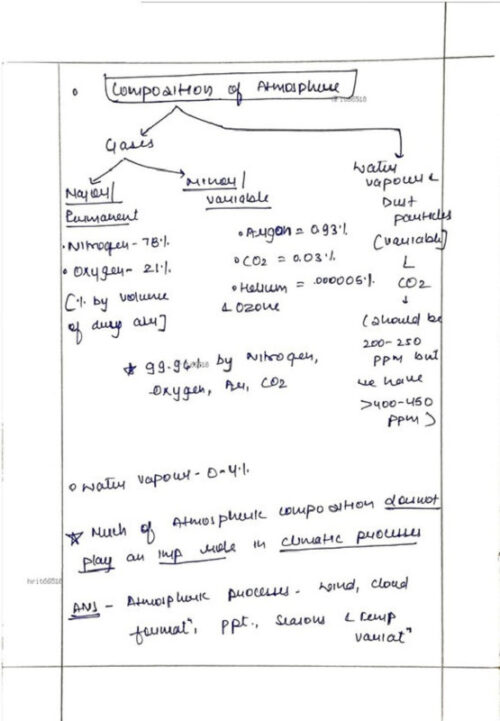 Composition of Atmosphere
hrit66518
Gases
Major/
Permanent
• Nitrogen - 78%
• Oxygen - 21%
[% by volume
of dry air]
Minor/
variable
• Argon = 0.93%
• CO2 = 0.03%
• Helium = .000005%
& Ozone
water
vapour &
Dust
particles
[variable]
&
CO2
↓
(should be
200-250
ppm but
we have
>400-450
ppm)
☆ 99.94% by Nitrogen,
Oxygen, Ar, CO2
• water vapour - 0-4%
☆ Much of Atmospheric composition doesnot
play an imp role in climatic processes
hrit66518
ANS - Atmospheric processes - wind, cloud
formatⁿ, ppt., seasons & temp
variatⁿ